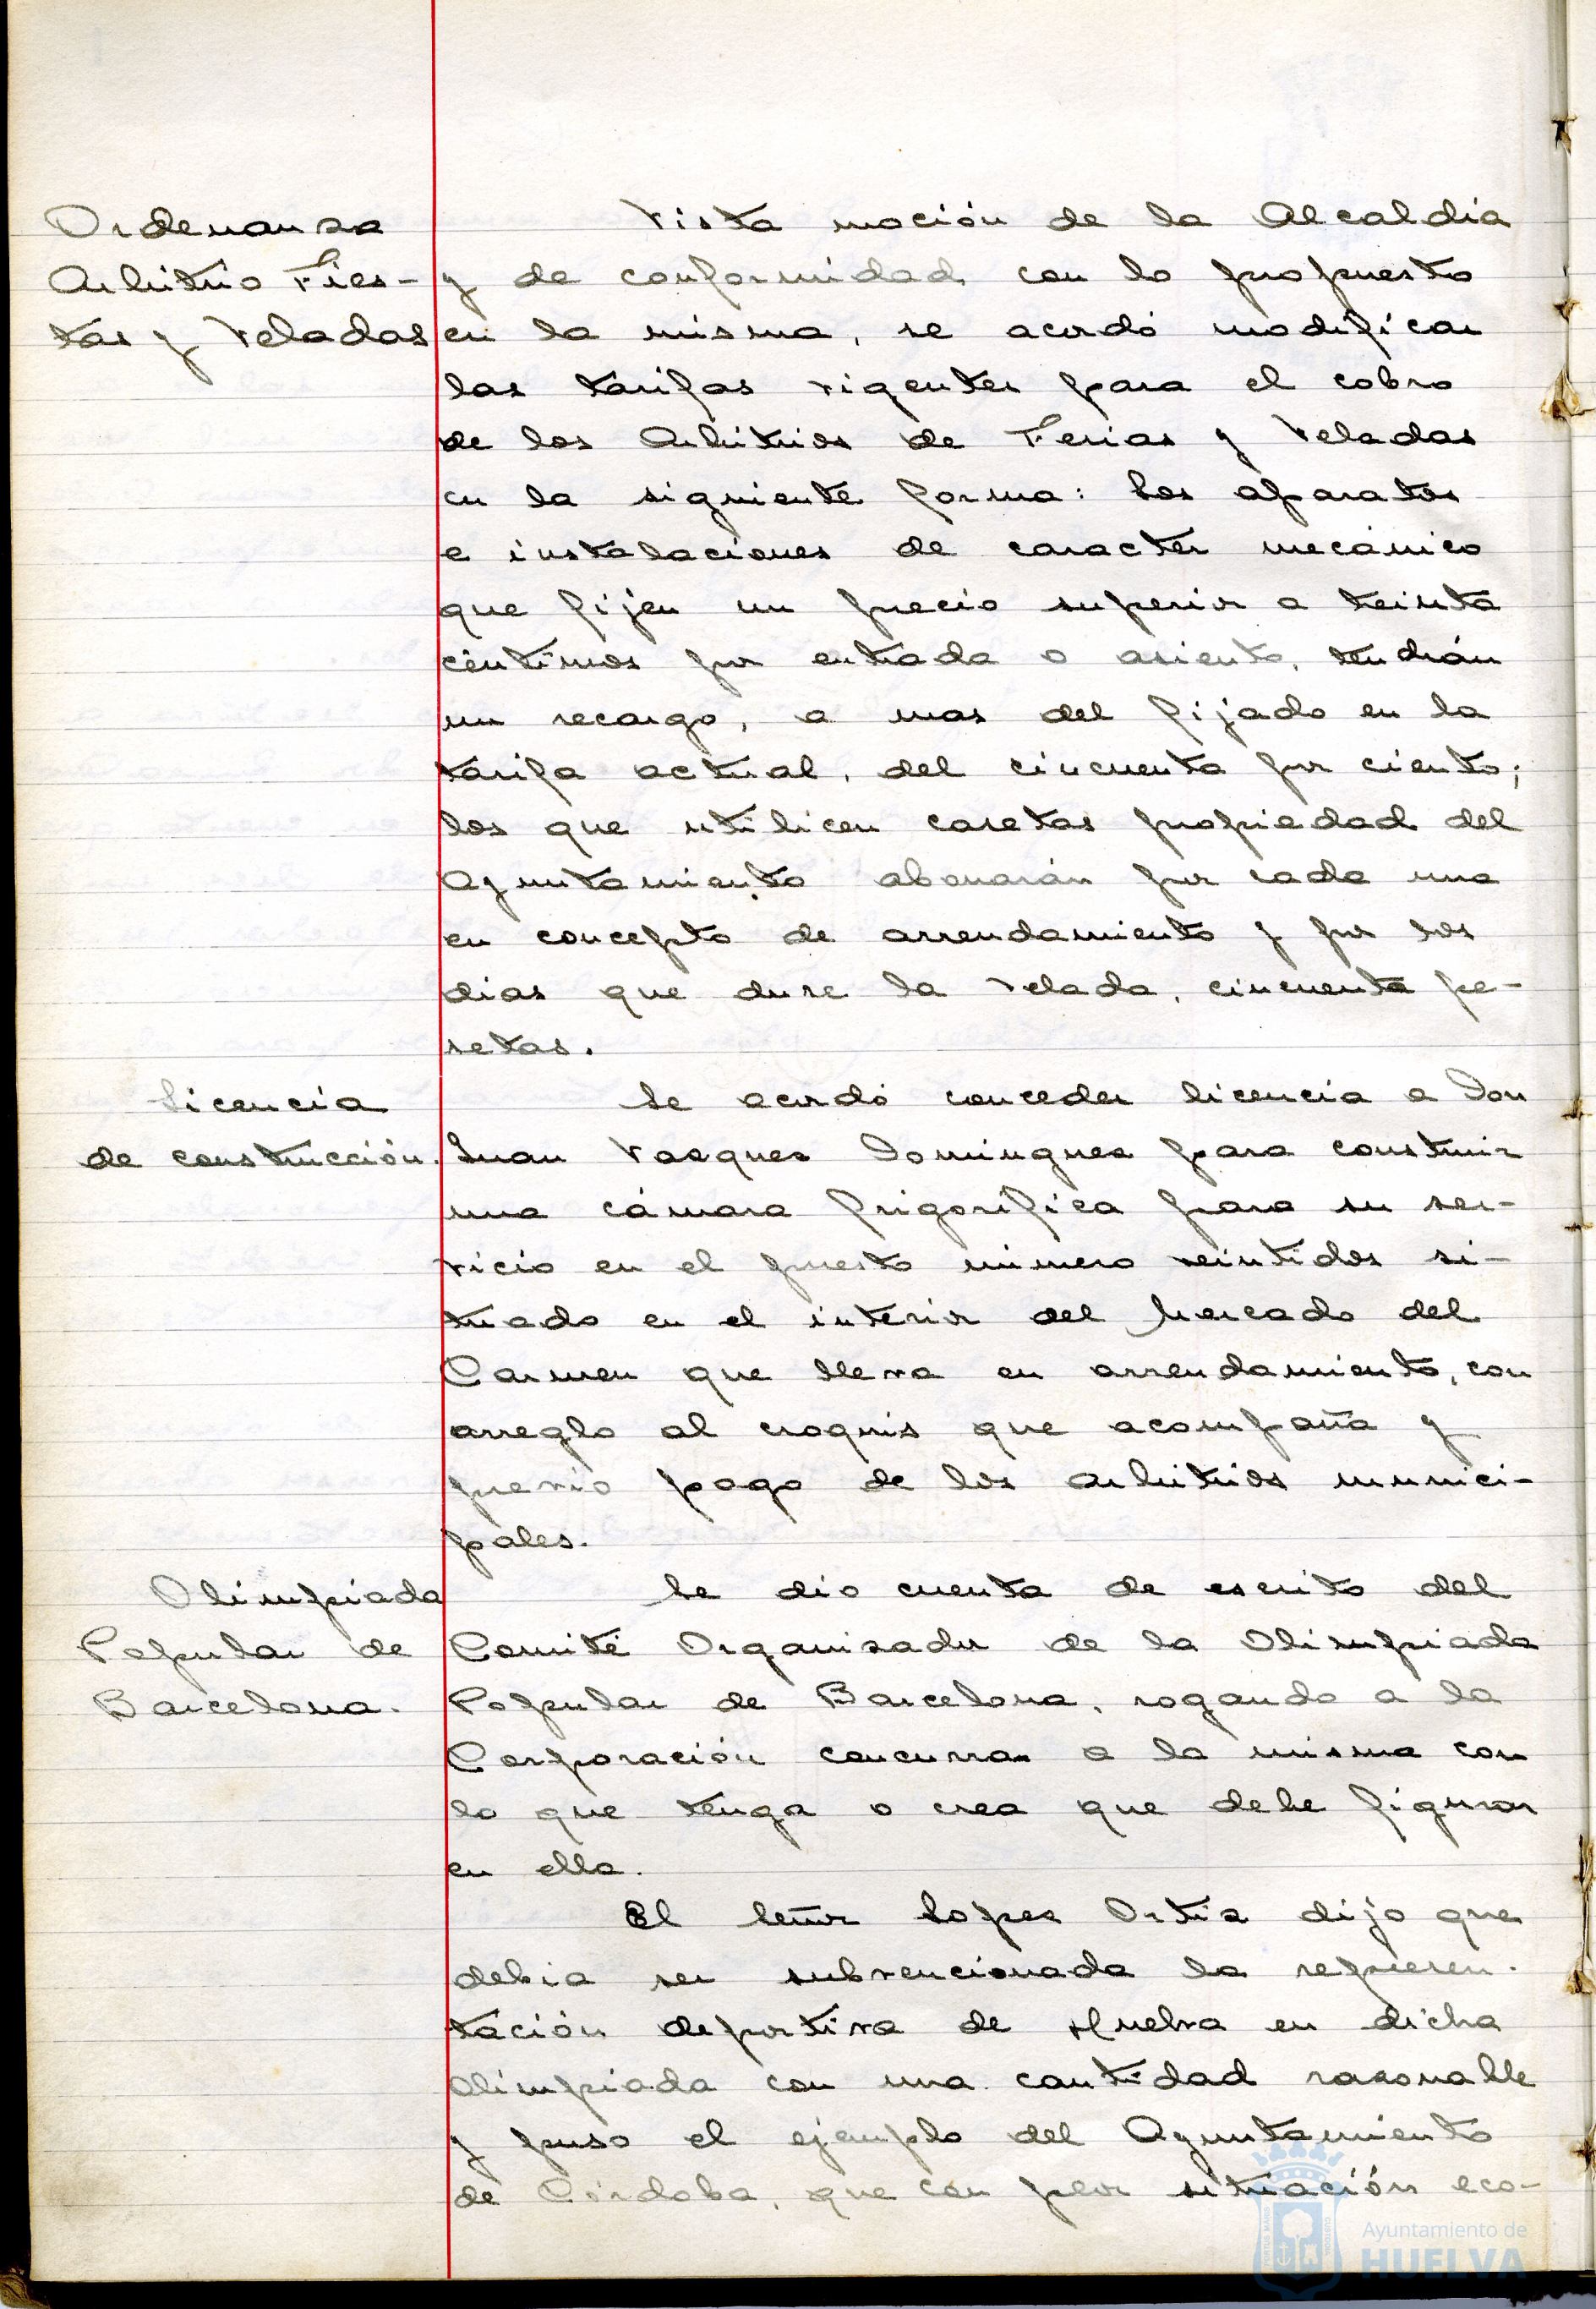 Ordenanza
Arbitrio Fies-
tas y Veladas
Vista moción de la Alcaldia
y de conformidad con lo propuesto
en la misma, se acordó modificar
las tarifas vigentes para el cobro
de los Arbitrios de Ferias y Veladas
en la siguiente forma: Los aparatos
e instalaciones de caracter mecánico
que fijen un precio superior a treinta
céntimos por entrada o asiento, tendrán
un recargo, a mas del fijado en la
tarifa actual, del cincuenta por ciento;
los que utilicen casetas propiedad del
Ayuntamiento abonarán por cada una
en concepto de arrendamiento y por los
dias que dure la velada, cincuenta pe-
setas.
Licencia
de construcción.
Se acordó conceder licencia a Don
Juan Vazquez Dominguez para construir
una cámara frigorífica para su ser-
vicio en el puesto número veintidos si-
tuado en el interior del Mercado del
Carmen que lleva en arrendamiento, con
arreglo al croquis que acompaña y
previo pago de los arbitrios munici-
pales.
Olimpiada
Popular de
Barcelona.
Se dio cuenta de escrito del
Comité Organizador de la Olimpiada
Popular de Barcelona, rogando a la
Corporación concurran a la misma con
lo que tenga o crea que debe figurar
en ella.
El Señor Lopez Ortiz dijo que
debia ser subvencionada la represen-
tación deportiva de Huelva en dicha
Olimpiada con una cantidad razonable
y puso el ejemplo del Ayuntamiento
de Córdoba, que con peor situación eco-
Ayuntamiento de
HUELVA